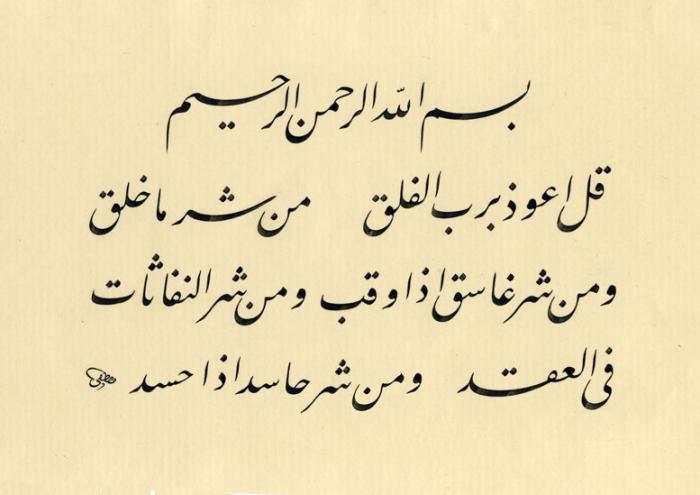 بسم الله الرحمن الرحيم
قل اعوذ برب الفلق من شر ما خلق
ومن شر غاسق اذا وقب ومن شر النفاثات
فى العقد ومن شر حاسد اذا حسد